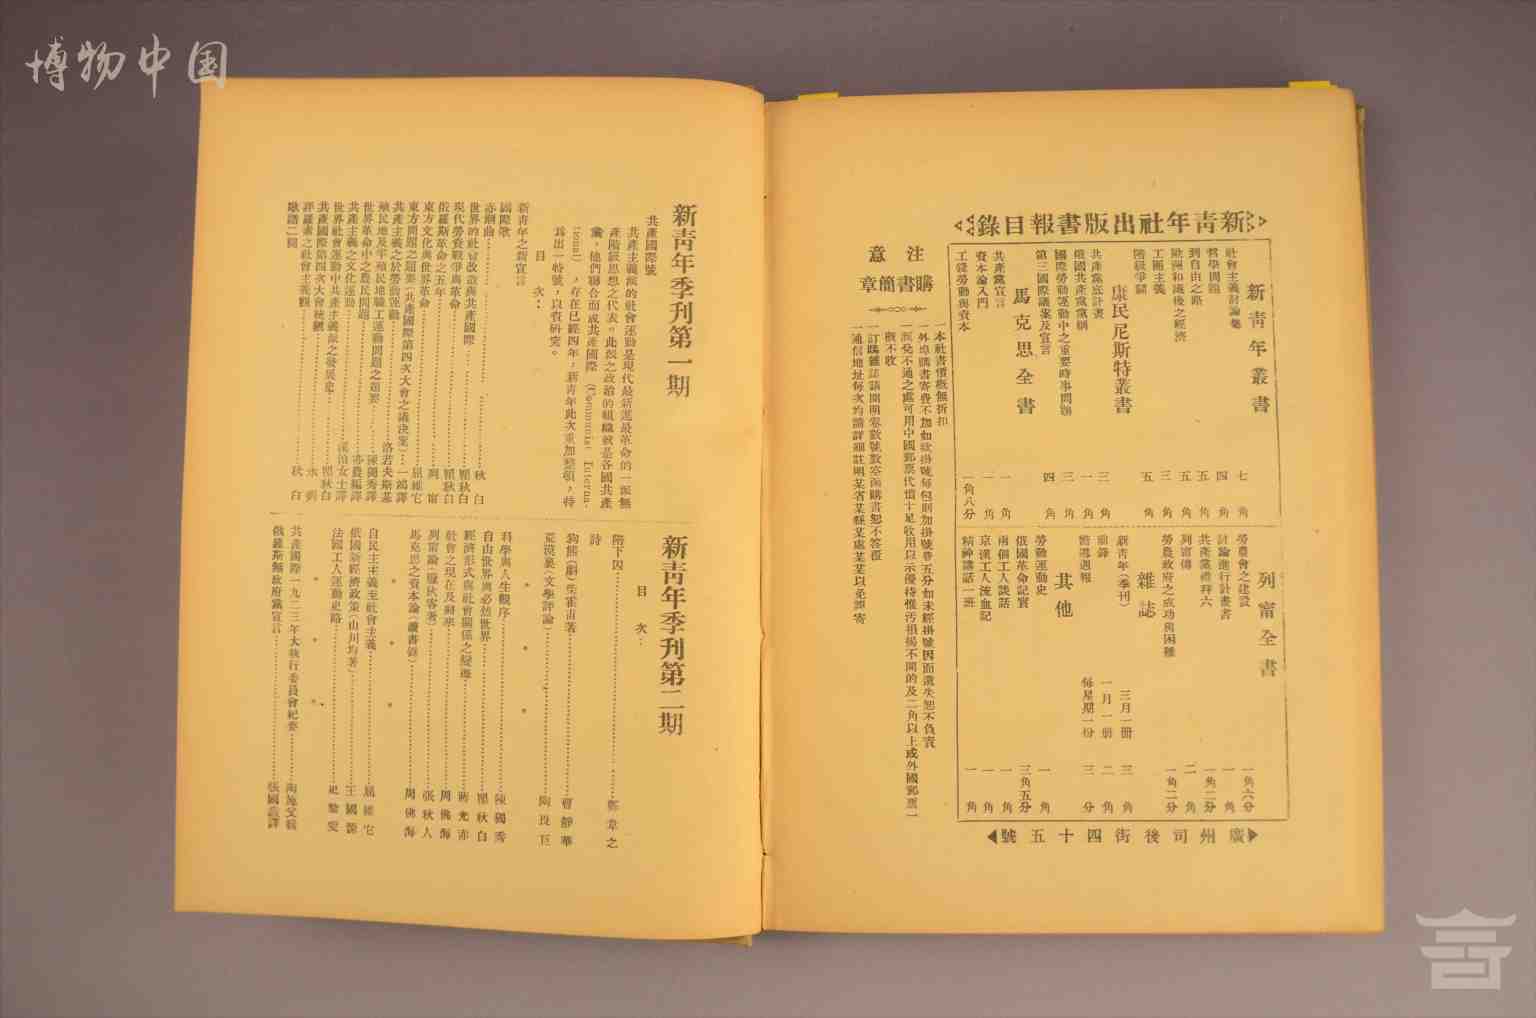 博物中国
新青年社出版書報目錄
新青年叢書
社會主義討論集 七角
哲學問題 四角
到自由之路 五角
歐洲和議後之經濟 五角
工團主義 三角
階級爭鬬 五角
康民尼斯特叢書
共產黨底計畫 三角
俄國共產黨黨綱 一角
國際勞働運動中之重要時事問題 三角
第三國際議案及宣言 四角
馬克思全書
共產黨宣言 一角
資本論入門 一角
工錢勞動與資本 一角八分
列甯全書
勞農會之建設 一角六分
討論進行計畫書 一角
共產黨禮拜六 一角二分
列甯傳 二角
勞農政府之成功與困難 一角二分
雜誌
新青年(季刊) 三月一冊 三角
前鋒 一月一冊 二角
嚮導週報 每星期一份 三分
其他
勞動運動史 一角
俄國革命記實 三角五分
兩個工人談話 一角
京漢工人流血記 一角
精神講話一斑 一角
廣州司後街四十五號
注意
購書簡章
一本社書價概無折扣
一外埠購書寄費不加如欲掛號每包則加掛號費五分如未經掛號因而遺失恕不負責
一滙兌不通之處可用中國郵票代價十足收用以示優待惟汚損揭不開的及二角以上或外國郵票一
概不收
一訂購雜誌請開明卷數號數空函購書恕不答覆
一通信地址每次均請詳細註明某省某縣某處某某以免誤寄
新青年季刊第一期
共產國際號
共產主義派的社會運動是現代最新進最革命的一派無
產階級思想之代表。此派之政治的組織就是各國共產
黨，他們聯合而成共產國際 (Communist Interna-
tional)，存在已經四年，新青年此次重加整頓，特
爲出一特號，以資研究。
目次：
新青年之新宣言
國際歌
赤潮曲 秋白
世界的社會改造與共產國際 瞿秋白
現代勞資戰爭與革命 瞿秋白
俄羅斯革命之五年
東方文化與世界革命 屈維它
東方問題之題要(共產國際第四次大會之議決案) 一鴻譯
共產主義之於勞動運動 洛若夫斯基
殖民地及半殖民地職工運動問題之題要
世界革命中之農民問題 陳獨秀譯
共產主義之文化運動 亦農編譯
世界社會運動中共產主義派之發展史 瞿秋白
共產國際第四次大會統觀
評羅素之社會主義觀
秋白
新青年季刊第二期
目次：
階下囚 鄭韋之
詩
狗熊(劇)柴霍甫著 曹靜華
荒漠裏(文學評論) 陶良臣
科學與人生觀序 陳獨秀
自由世界與必然世界 瞿秋白
經濟形式與社會關係之變遷 蔣光赤
社會之現在及將來 周佛海
列甯論(羅狄客著) 張秋人
馬克思之資本論(讀書錄) 周佛海
自民主主義至社會主義 屈維它
俄國新經濟政策(山川均著) 王國源
法國工人運動史略
共產國際一九二三年大執行委員會紀要
俄羅斯無政府黨宣言 張國燾譯